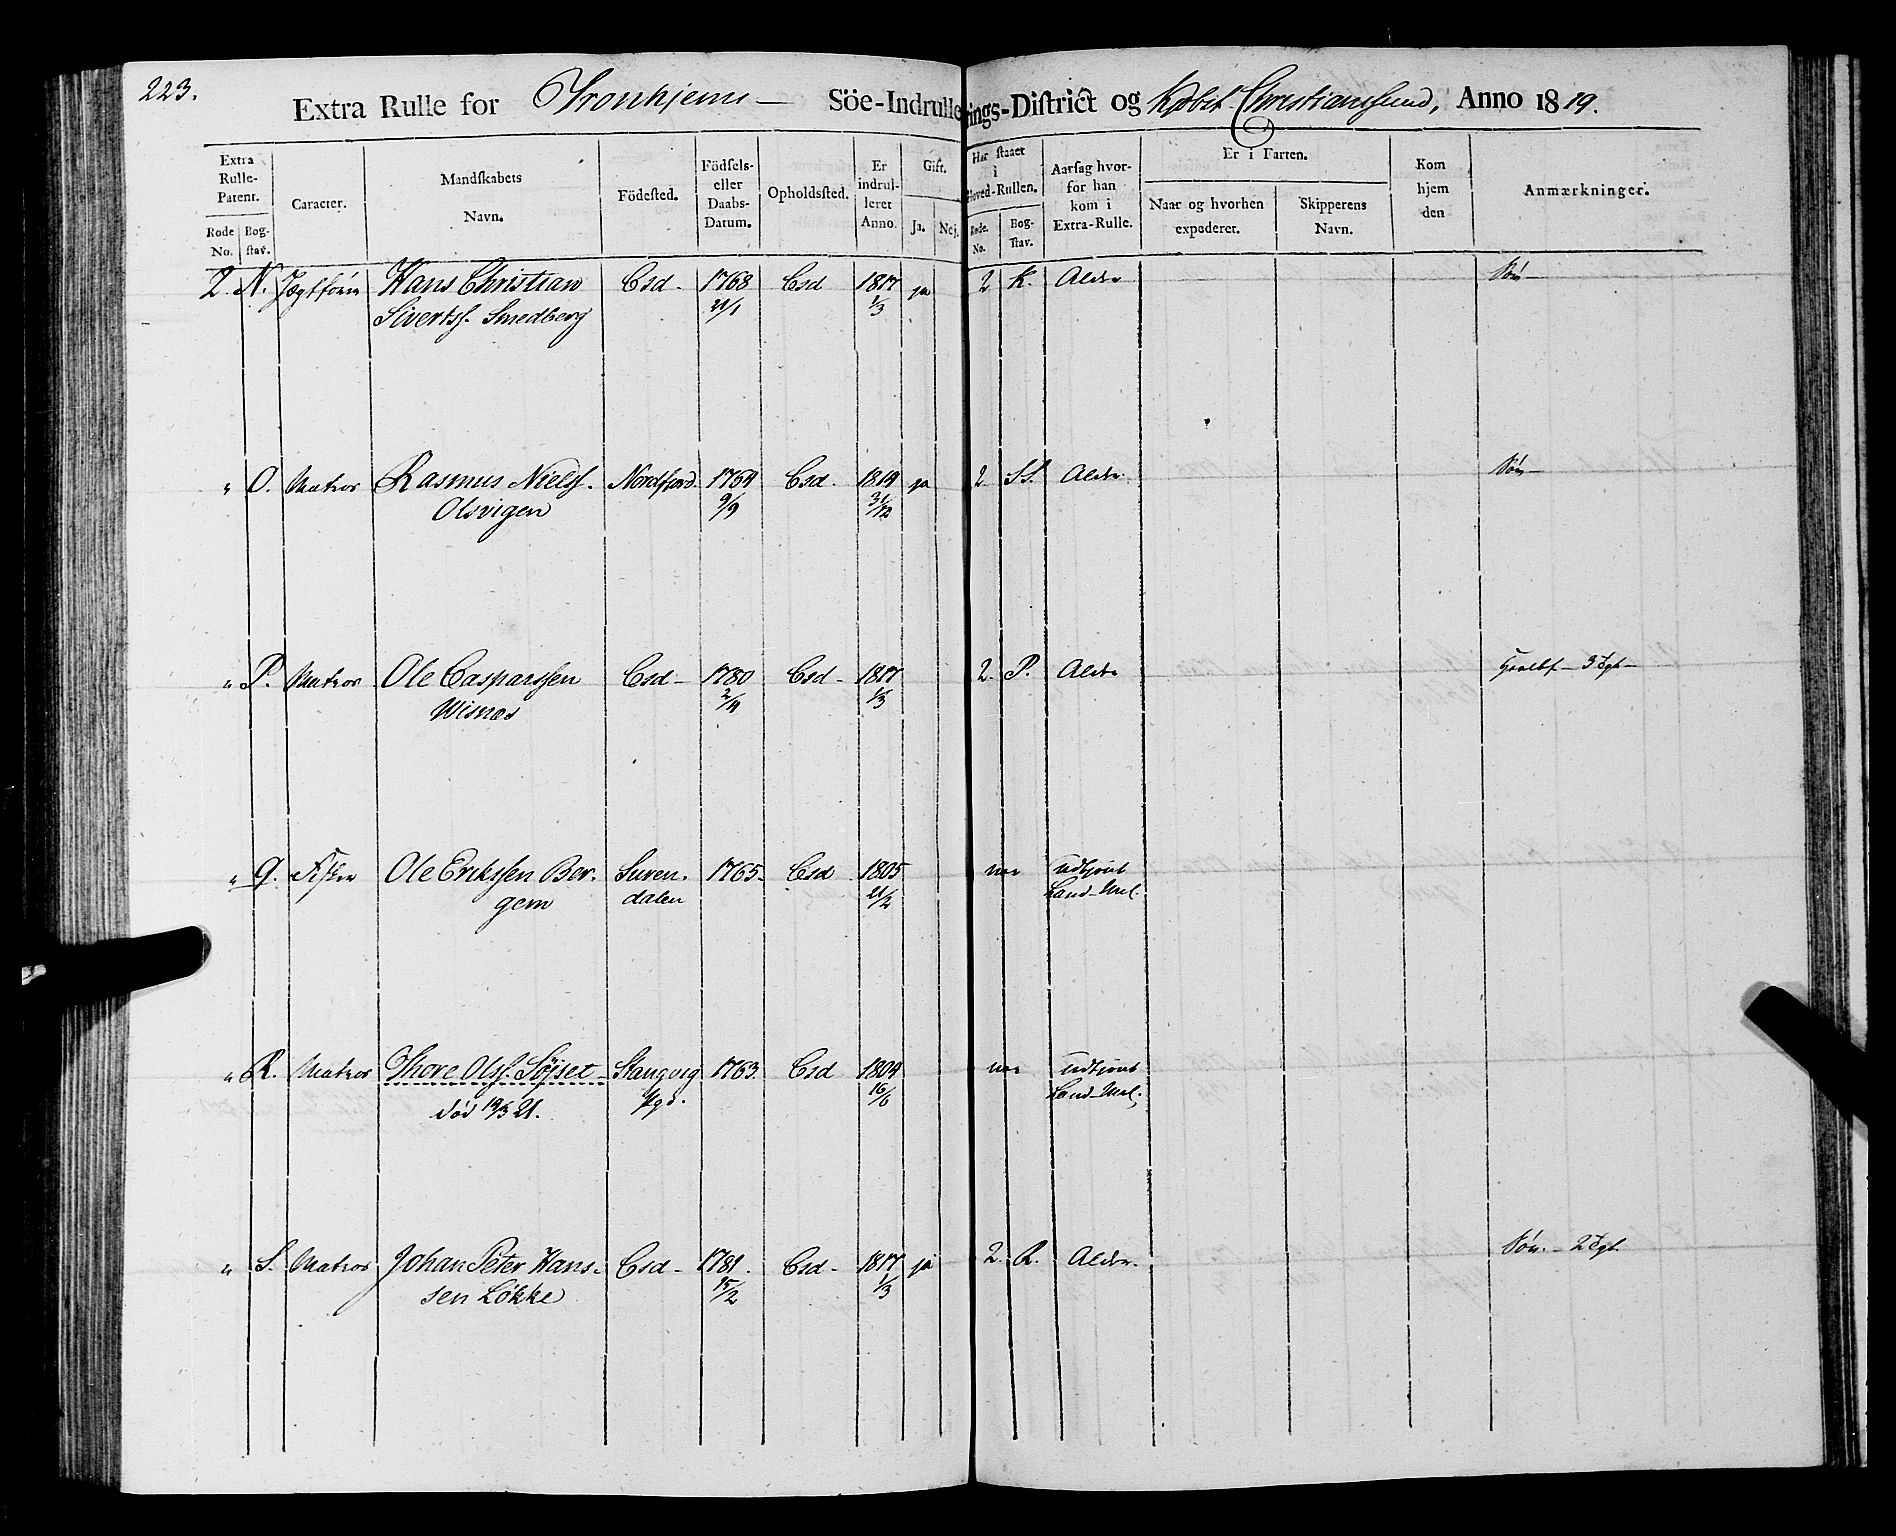 223.
Extra Rulle for Tronhjems Söe-Indrullerings-District og Kjøbst Christianssund, Anno 1819.
Extra Rulle-Patent. Caracter. Mandskabets Navn. Födested. Födsels- eller Daabs-Datum. Opholdsted. Er indrulleret Anno. Gift. Har staaet i Hoved-Rullen. Aarsag hvorfor han kom i Extra-Rulle. Er i Farten. Kom hjem den Anmærkninger.
Rode No. Bogstav. Ja. Nej. Rode. No. Bogstav. Naar og hvorhen expederet. Skipperens Navn.
2. N. Hans Christian Csd. 1768 Csd 1817 ja 2 K. Alder
Siverts. Smedberg 21/1 1/3
" O. Matros Rasmus Niels. Nordfjord 1764 Csd. 1814 ja 2 SS. Alder
Olsvigen 9/9 31/12
" P. Matros Ole Casparssen Csd 1780 Csd 1817 2. P. Alder
Wisnæs 2/4 1/3
" Q. Fisker Ole Erikssen Ber- Suren- 1765 Csd 1805
gem dalen 21/2 Land-
" R. Matros Thore Olss. Söjset Stangvig 1763 Csd 1804
død 19/3 21. Pgd. 16/6 Land-
" S. Matros Johan Peter Hans- Csd 1781. Csd 1817 ja 2. R. Alder.
sen Løkke 15/2 1/3